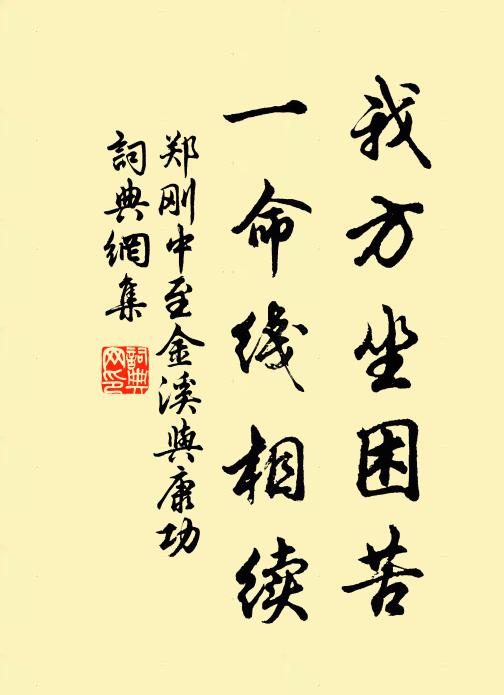 我方坐困苦
一命线相续
郑刚中至金溪與康功
詞典網集
詞典網印